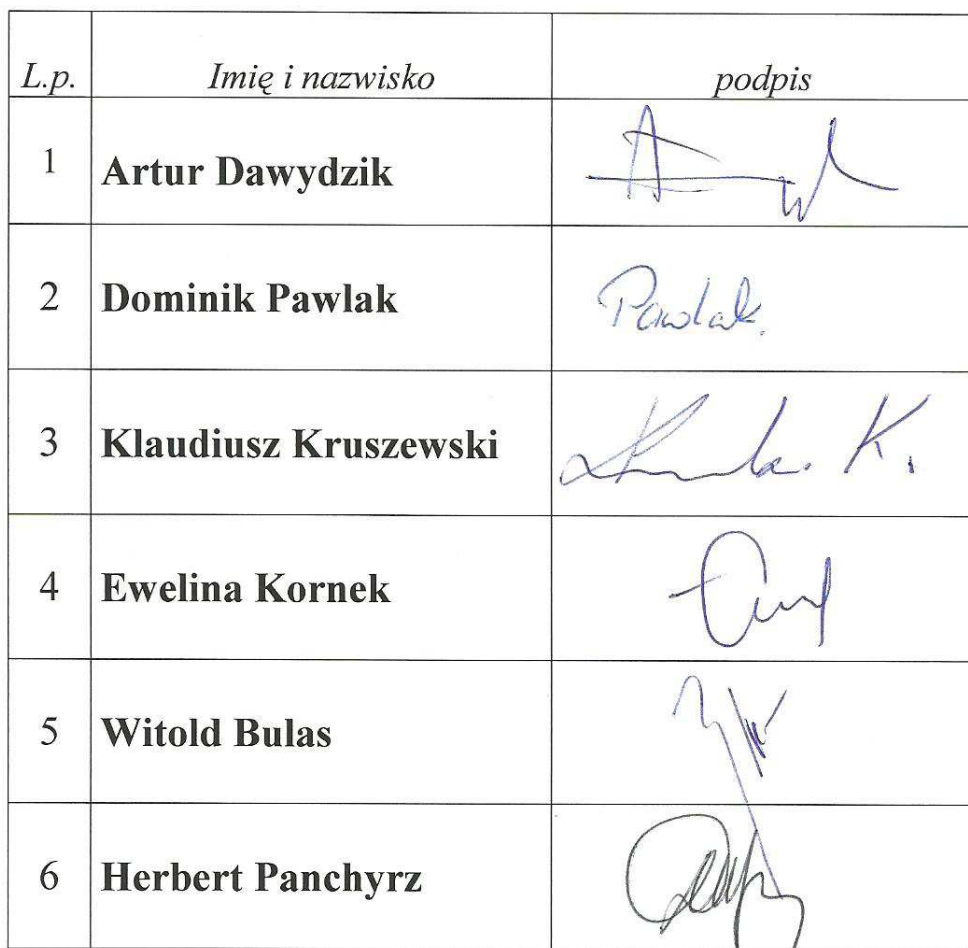 L.p. Imię i nazwisko podpis
1 Artur Dawydzik
2 Dominik Pawlak Pawlak.
3 Klaudiusz Kruszewski
4 Ewelina Kornek
5 Witold Bulas
6 Herbert Panchyrz